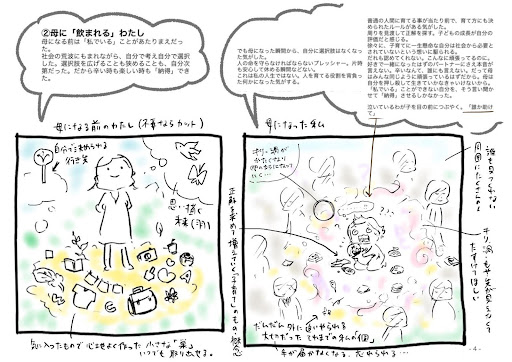 ②母に「飲まれる」わたし
母になる前は「私でいる」ことがあたりまえだっ
た。
社会の荒波にもまれながら、自分で考え自分で選択
した。選択肢を広げることも狭めることも、自分次
第だった。だから辛い時も楽しい時も「納得」でき
た。
でも母になった瞬間から、自分に選択肢はなくなっ
た気がした。
人の命を守らなければならないプレッシャー。片時
も安心して休める瞬間などない。
これは私の人生ではない。人を育てる役割を背負っ
た何かになった気がする。
普通の人間に育てる事が当たり前で、育て方にも決
められたルールがある気がした。
周りを見渡して正解を探す。子どもの成長が自分の
評価だと感じる。
徐々に、子育てに一生懸命な自分は社会から必要と
されていないという想いに駆られる。
だれも認めてくれない。こんなに頑張ってるのに。
好きで一緒になったはずのパートナーにさえ本音が
言えない。辛いなんて、誰にも言えない。だって母
はみんな同じように頑張っているはずだから。母は
自分を押し殺して生きていかなきゃいけないから。
「私でいる」ことができない自分を、そう言い聞か
せて「納得」させるしかなかった。
泣いているわが子を目の前につぶやく。「誰か助け
て」
母になる前のわたし(不要ならカット)
自分で決められる
行き先
思い描く
未来(沢山)
気に入ったもので心地よく作った小さな「巣」
いつでも取り出せる。
母になった私
だんだん外に追いやられる
大切だった てれまでの私の「個」
手が届かなくなる。
誰も見てくれない
周囲にたくさん
たすけてほしい
- 4 -